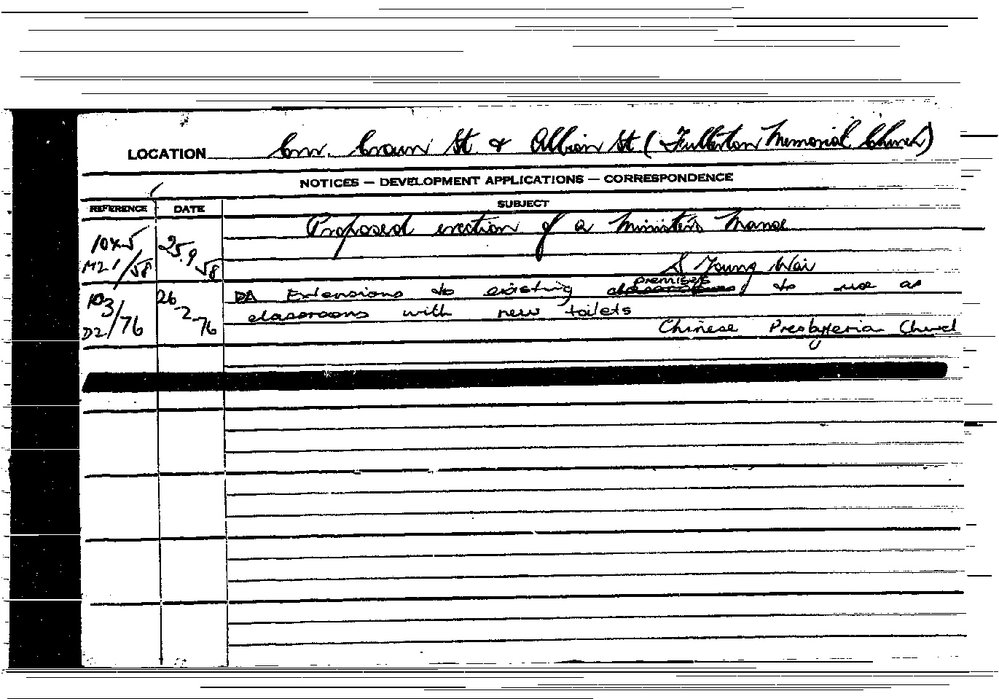 LOCATION Cnr. Crown St & Albion St (Fullerton Memorial Church)
NOTICES — DEVELOPMENT APPLICATIONS — CORRESPONDENCE
REFERENCE DATE SUBJECT
Proposed erection of a Minister's Manse
M21/58 25.9.58
S Young Wai
premises
103 26 DA Extensions to existing to use as
D2/76 -2-76 classrooms with new toilets
Chinese Presbyterian Church